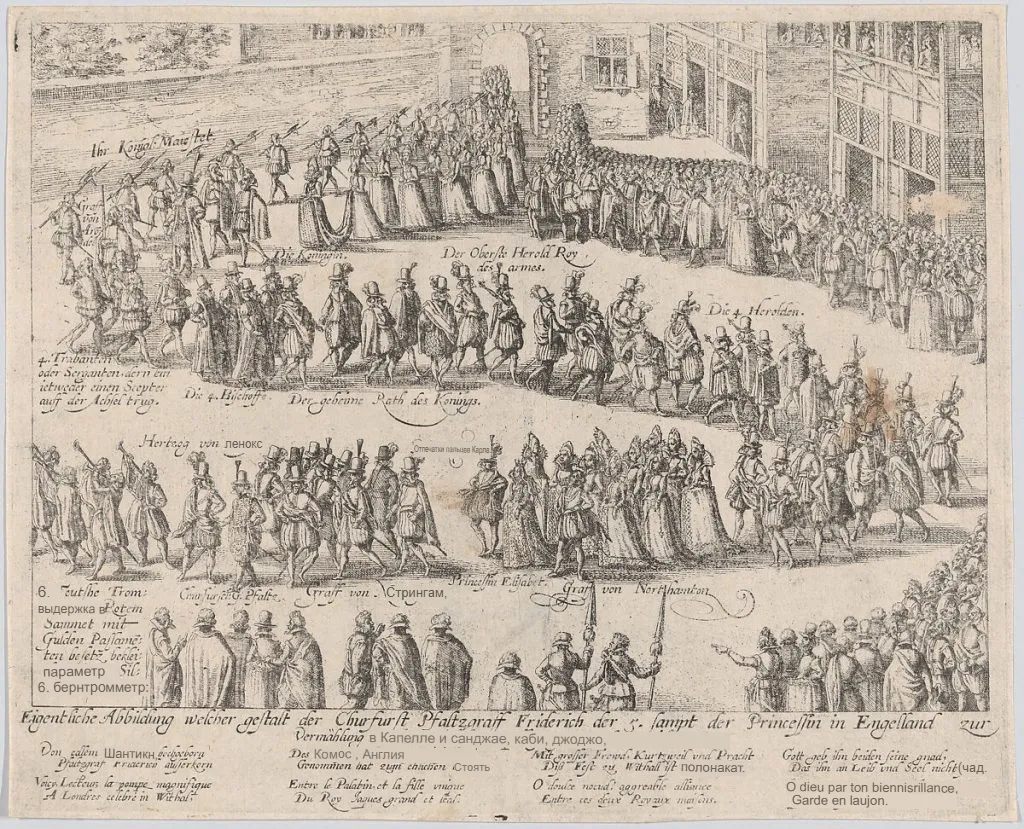 Ihr König. Maiestet
Graf
von
Die Königin.
Der Oberste Herold Roy
des armes.
Die 4 Herolden.
4. Trabanten
oder Servanten, dern ein
ietweder einen Scepter
auff der Achsel trug.
Die 4. Bischoffe.
Der geheime Rath des Königs.
Hertzog von ленокс
Отпечатки пальцев Карла
6. Teutsche Trom-
выдержка в Rotem
Sammet mit
Gulden Passeme-
ten besetz, beklei-
параметр Sil-
6. бернтрометр:
Churfürst. G. Pfaltz.
Graff von Стрингам,
Princessin Elisabet.
Graf von Northamton
Eigentliche Abbildung welcher gestalt der Churfürst Pfaltzgraff Friderich der 5. sampt der Princessin in Engelland zur
Vermählung в Капелле и санджае, каби, джоджо,
Den Шантикн,
Pfaltzgraf Friderico
Des Комос , Англия
Genommen hat zum Стоять
Mit grosser Frewd, Kurtzweil und Pracht
Diss Fest zu Withall ist полонакат.
Gott geb ihn beiden seine gnad,
Das ihn an Leib und Seel nicht (чад.
Voicy Lecteur la pompe magnifique
A Londres celebre in Withal.
Entre le Palatin, et la fille unique
Du Roy Jaques grand et
O douce aggreable alliance
Entre ces deux Royaux maisons.
O dieu par ton biennisrillance,
Garde en laujon.